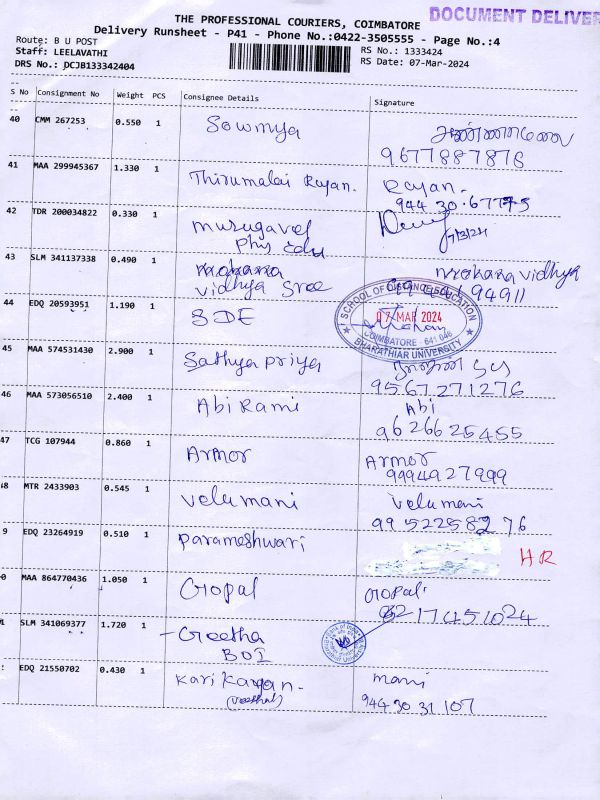 THE PROFESSIONAL COURIERS, COIMBATORE
DOCUMENT DELIVER
Delivery Runsheet - P41 - Phone No.:0422-3505555 - Page No.:4
Route: B U POST
RS No.: 1333424
Staff: LEELAVATHI
RS Date: 07-Mar-2024
DRS No.: DCJB133342404
S No Consignment No Weight PCS Consignee Details Signature
40 CMM 267253 0.550 1 Sowmya
9677887876
41 MAA 299945367 1.330 1 Thirumalai Rajan. Rajan.
944 30.67775
42 TDR 200034822 0.330 1 Murugavel
Phy Edu 7/3/24
43 SLM 341137338 0.490 1 Mohana Mohanavidhya
Vidhya Sree 94911
44 EDQ 20593951 1.190 1 SDE
SCHOOL OF DISTANCE EDUCATION
07 MAR 2024
COIMBATORE - 641 046
BHARATHIAR UNIVERSITY
45 MAA 574531430 2.900 1 Sathya Priya
9567271276
46 MAA 573056510 2.400 1 Abi Rami Abi
9626625455
47 TCG 107944 0.860 1 Armor Armor
9994927999
48 MTR 2433903 0.545 1 Velumani Velumani
99 522582 76
9 EDQ 23264919 0.510 1 Parameshwari HR
0 MAA 864770436 1.050 1 Gopal Gopal
6217451024
1 SLM 341069377 1.720 1 - Geetha
BOI
: EDQ 21550702 0.430 1 Karikaryan - Mani
944 30 31 107